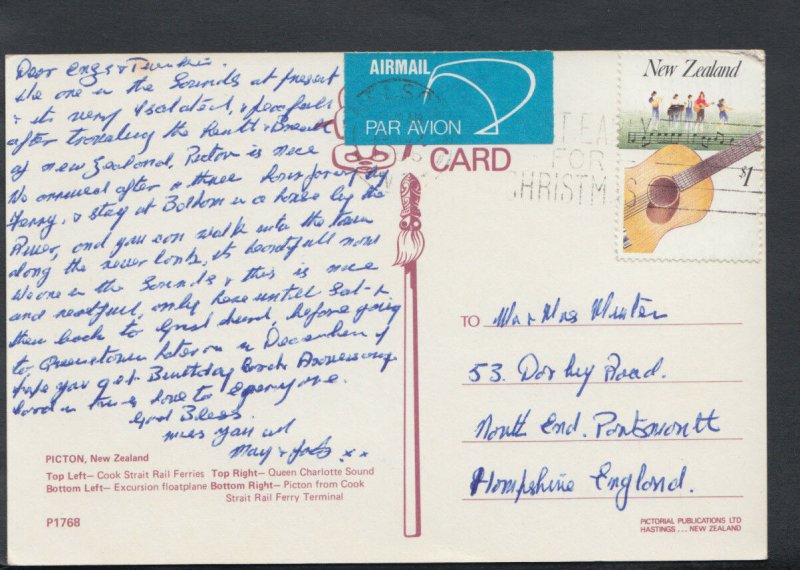 Dear
We are in the Sounds at present
& its very Isolated, & peacefull
after travelling the &
of New Zealand, Picton is nice
We arrived after a three hour ferry
Ferry, & stay at in a house by the
River, and you can walk into the town
along the river its beautifull now
We are in the Sounds & this is nice
and restfull, only here until Sat-
then back to before going
to Queenstown later on in December I
hope you got Birthday Card & Anniversary
in love to everyone.
God Bless.
miss you all
May & x x
AIRMAIL
PAR AVION
CARD
FOR
CHRISTMAS
New Zealand
$1
TO Mr & Mrs
53. Road.
North End. Portsmouth
Hampshire England.
PICTON, New Zealand
Top Left— Cook Strait Rail Ferries Top Right— Queen Charlotte Sound
Bottom Left— Excursion floatplane Bottom Right— Picton from Cook
Strait Rail Ferry Terminal
P1768
PICTORIAL PUBLICATIONS LTD
HASTINGS . . . NEW ZEALAND